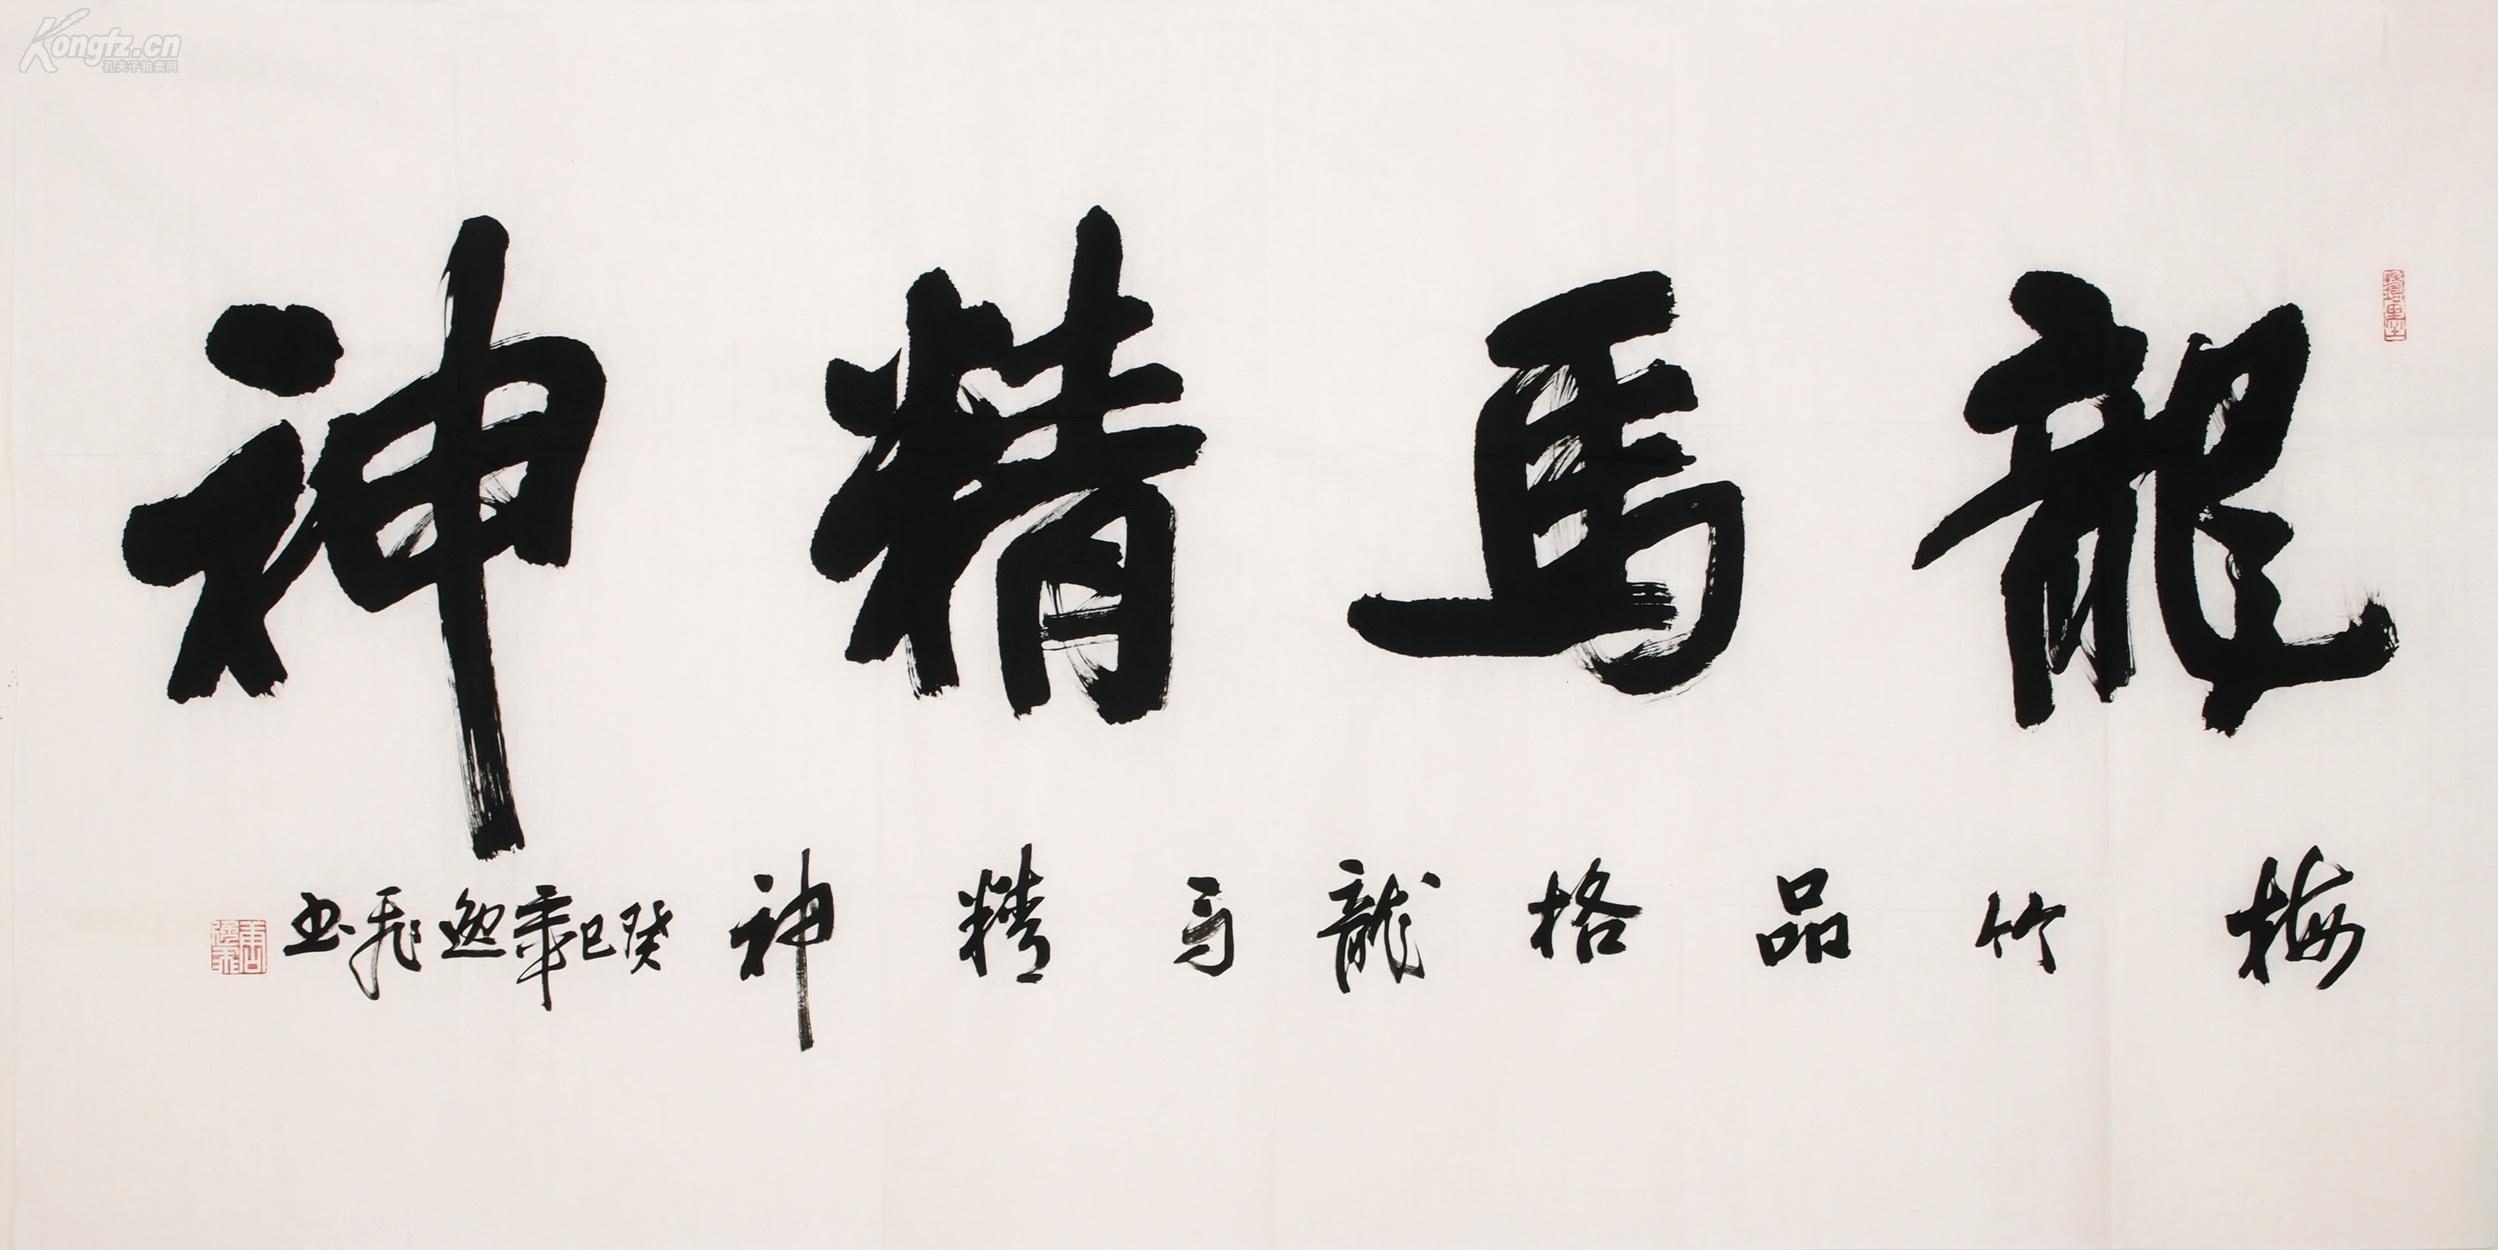 Kongfz.cn
孔夫子拍卖网
龍馬精神
梅竹品格龍馬精神
癸巳年逸飛书